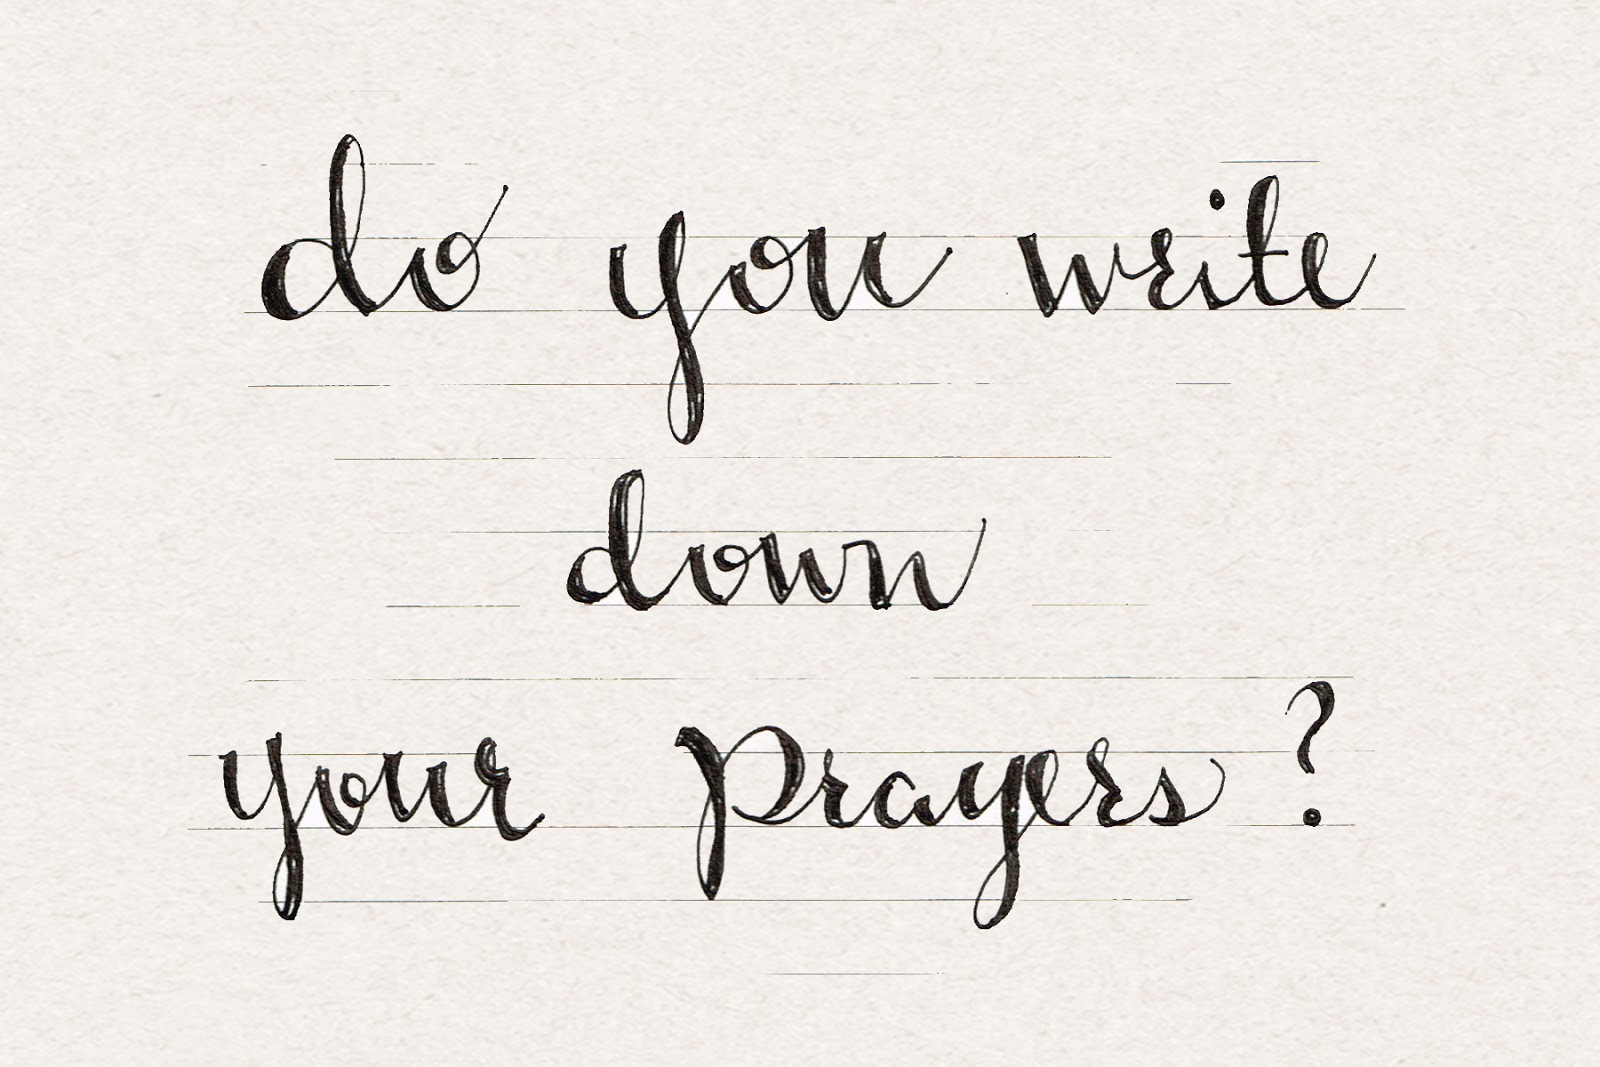 do you write
down
your prayers?